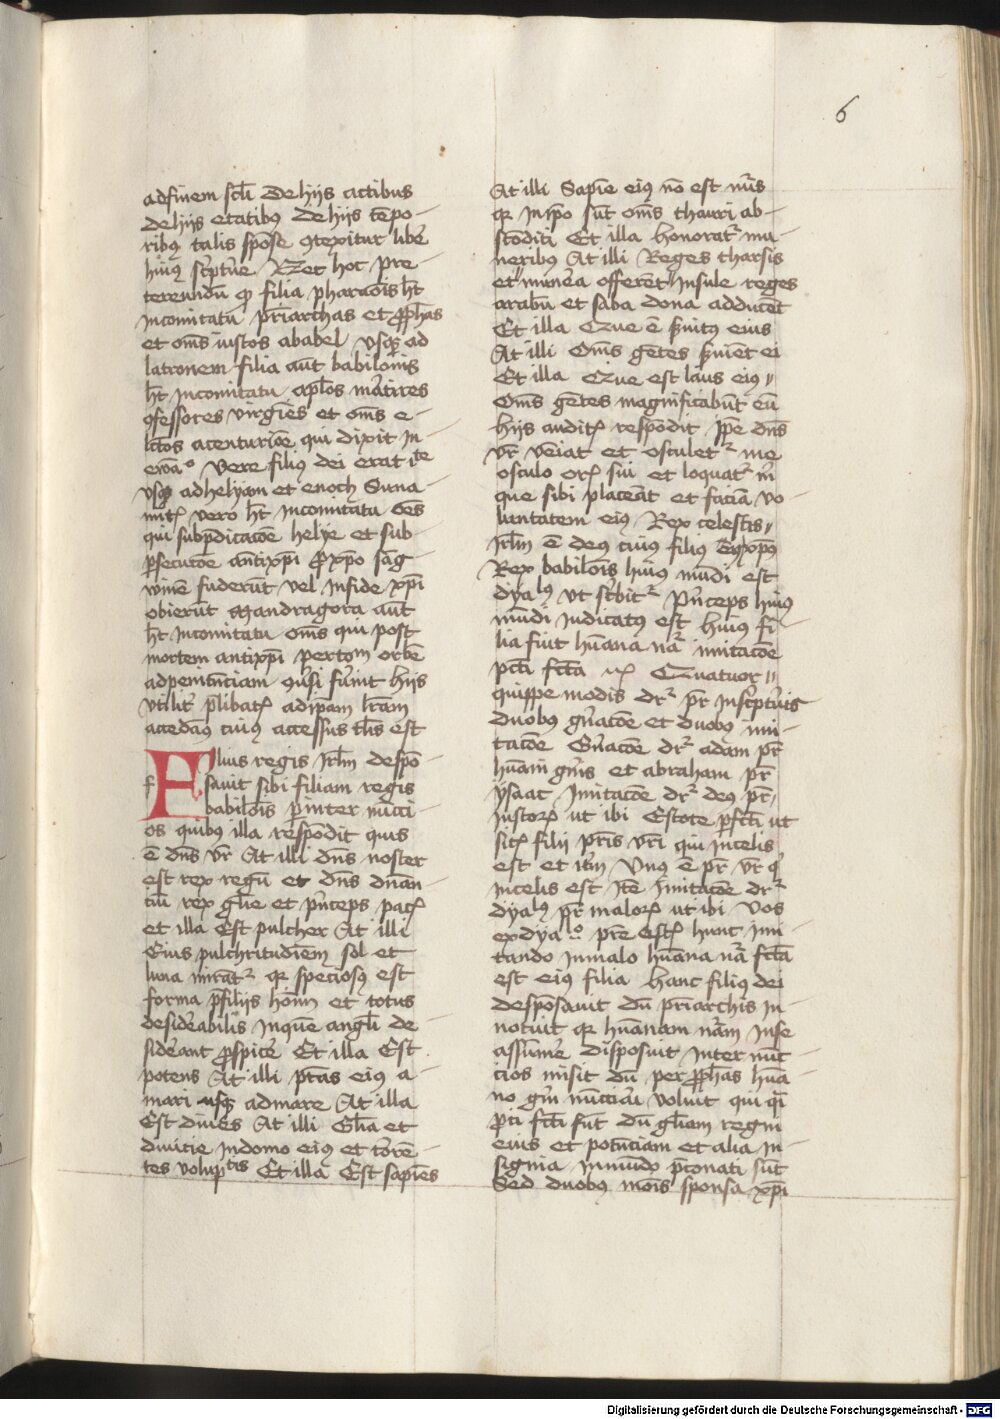 6
ad finem scĺi De hijs actibus
de hijs etatibꝫ De hijs tēpo-
ribꝫ talis spōse ꝯtexitur libr̄
huiꝰ sc̍ptur̄e Nec hoc pre-
tereundū ꝙ filia pharaōis hꝫ
in comitatu pr̄iarchas et ꝓphas
et om̄s iustos ab abel vsqꝫ ad
latronem filia aūt babilonis
hꝫ in comitatu apl̄os mr̄tires
ꝯfessores virgies et om̄s e-
lc̄tos a centurioe qui dixit in
Vere filiꝰ dei erat iste
vsqꝫ ad helyam et enoch Suna-
mitꝭ vero hꝫ in comitatu oēs
qui sub p̄dicacōe helye et sub
ꝑsecucōe antixp̄i ꝓ xp̄o sāg-
winē fuderūt vel in fide xp̄i
obierūt Mandragora aūt
hꝫ in comitatu om̄s qui post
mortem antixp̄i per totum orbē
ad penitn̄ciam ꝯu̍si fu̍int hijs
vtilit̍ p̄libatꝭ ad ip̄am lr̄am
accedamꝰ cuiꝰ accessus tl̄is est
Filius regis Jrl̄m despō-
sauit sibi filiam regis
babilōis p̄ inter nūcci-
os quibꝰ illa respōdit quis
ē dn̄s vr̄ At illi dn̄s noster
est rex regū et dn̄s dn̄an-
ciū rex gl̄ie et p̍nceps pacꝭ
et illa Est pulcher At illi
Eius pulchritudiēm sol et
luna mirāt᷑ qꝛ speciosꝰ est
forma p̄ filijs hōim et totus
desid̍abilis in quē angl̄i de
sid̍ant ꝓspic̍e Et illa Est
potens At illi pt̄as eiꝰ a-
mari usqꝫ ad mare At illa
Est diues At illi Gl̄ia et
diuicie in domo eiꝰ et torrē-
tes volup̄tis Et illa Est sapiēs
At illi Sapīe eiꝰ nō est nu̍s
qꝛ in ip̄o sūt om̄s thauri ab-
scōditi Et illa honorat᷑ mu-
neribus At illi Reges tharsis
et mun̍a offerēt Insule reges
arabū et saba dona adducēt
Et illa Que ē s̍uitꝰ eius
At illi Om̄s gētes s̍uiēt ei
Et illa Que est laus eiꝰ
Om̄s gētes magnificabūt eū
hijs auditꝭ respōdit Jpē dn̄s
vr̄ veniat et osculet᷑ me
osculo orꝭ sui et loquat᷑ m̍
que sibi placeāt et faciā vo-
luntatem eiꝰ Rex celestis
Jrl̄m ē deꝰ cuius filiꝰ xp̄us
Rex babilōis huiꝰ mūdi est
dyalꝰ vt sc̍bit᷑ P̍nceps huiꝰ
mūdi iudicatꝰ est huiꝰ fi-
lia fuit hūana nā imitacōe
pctī fctā Quatuor
quippe modis dr᷑ pr̄ in sc̍ptu̍is
duobꝰ gn̄acōe et duobꝰ imi-
tacōe Gn̄acōe dr᷑ adam pr̄
hūani gn̍is et abraham pr̄
ysaac Imitacōe dr᷑ deꝰ pr̄
iustorꝝ ut ibi Estote ꝑfctī ut
sitꝭ filij pr̄is vr̄i qui in celis
est et itm̄ Vnꝰ ē pr̄ vr̄ q̍
in celis est Itē Imitacōe dr᷑
dyalꝰ pr̄ malorꝝ ut ibi Vos
ex dyalo pr̄e estꝭ hunc imi-
tando in malo hūana nā fctā
est eiꝰ filia hanc filiꝰ dei
desponsauit dū pr̄iarchis in-
notuit qꝛ hūanam nr̄am in se
assūme̍ disposuit inter nūc-
cios misit dū per ꝓphas hūa-
no gn̍i nūcciari voluit qui q̍
pr̄i fctī sūt dū gl̄iam regni
eius et potn̄ciam et alia in-
signia in mundo p̄conati sūt
Sed duobꝰ mo̍is sponsa xp̄i
Digitalisierung gefördert durch die Deutsche Forschungsgemeinschaft - DFG